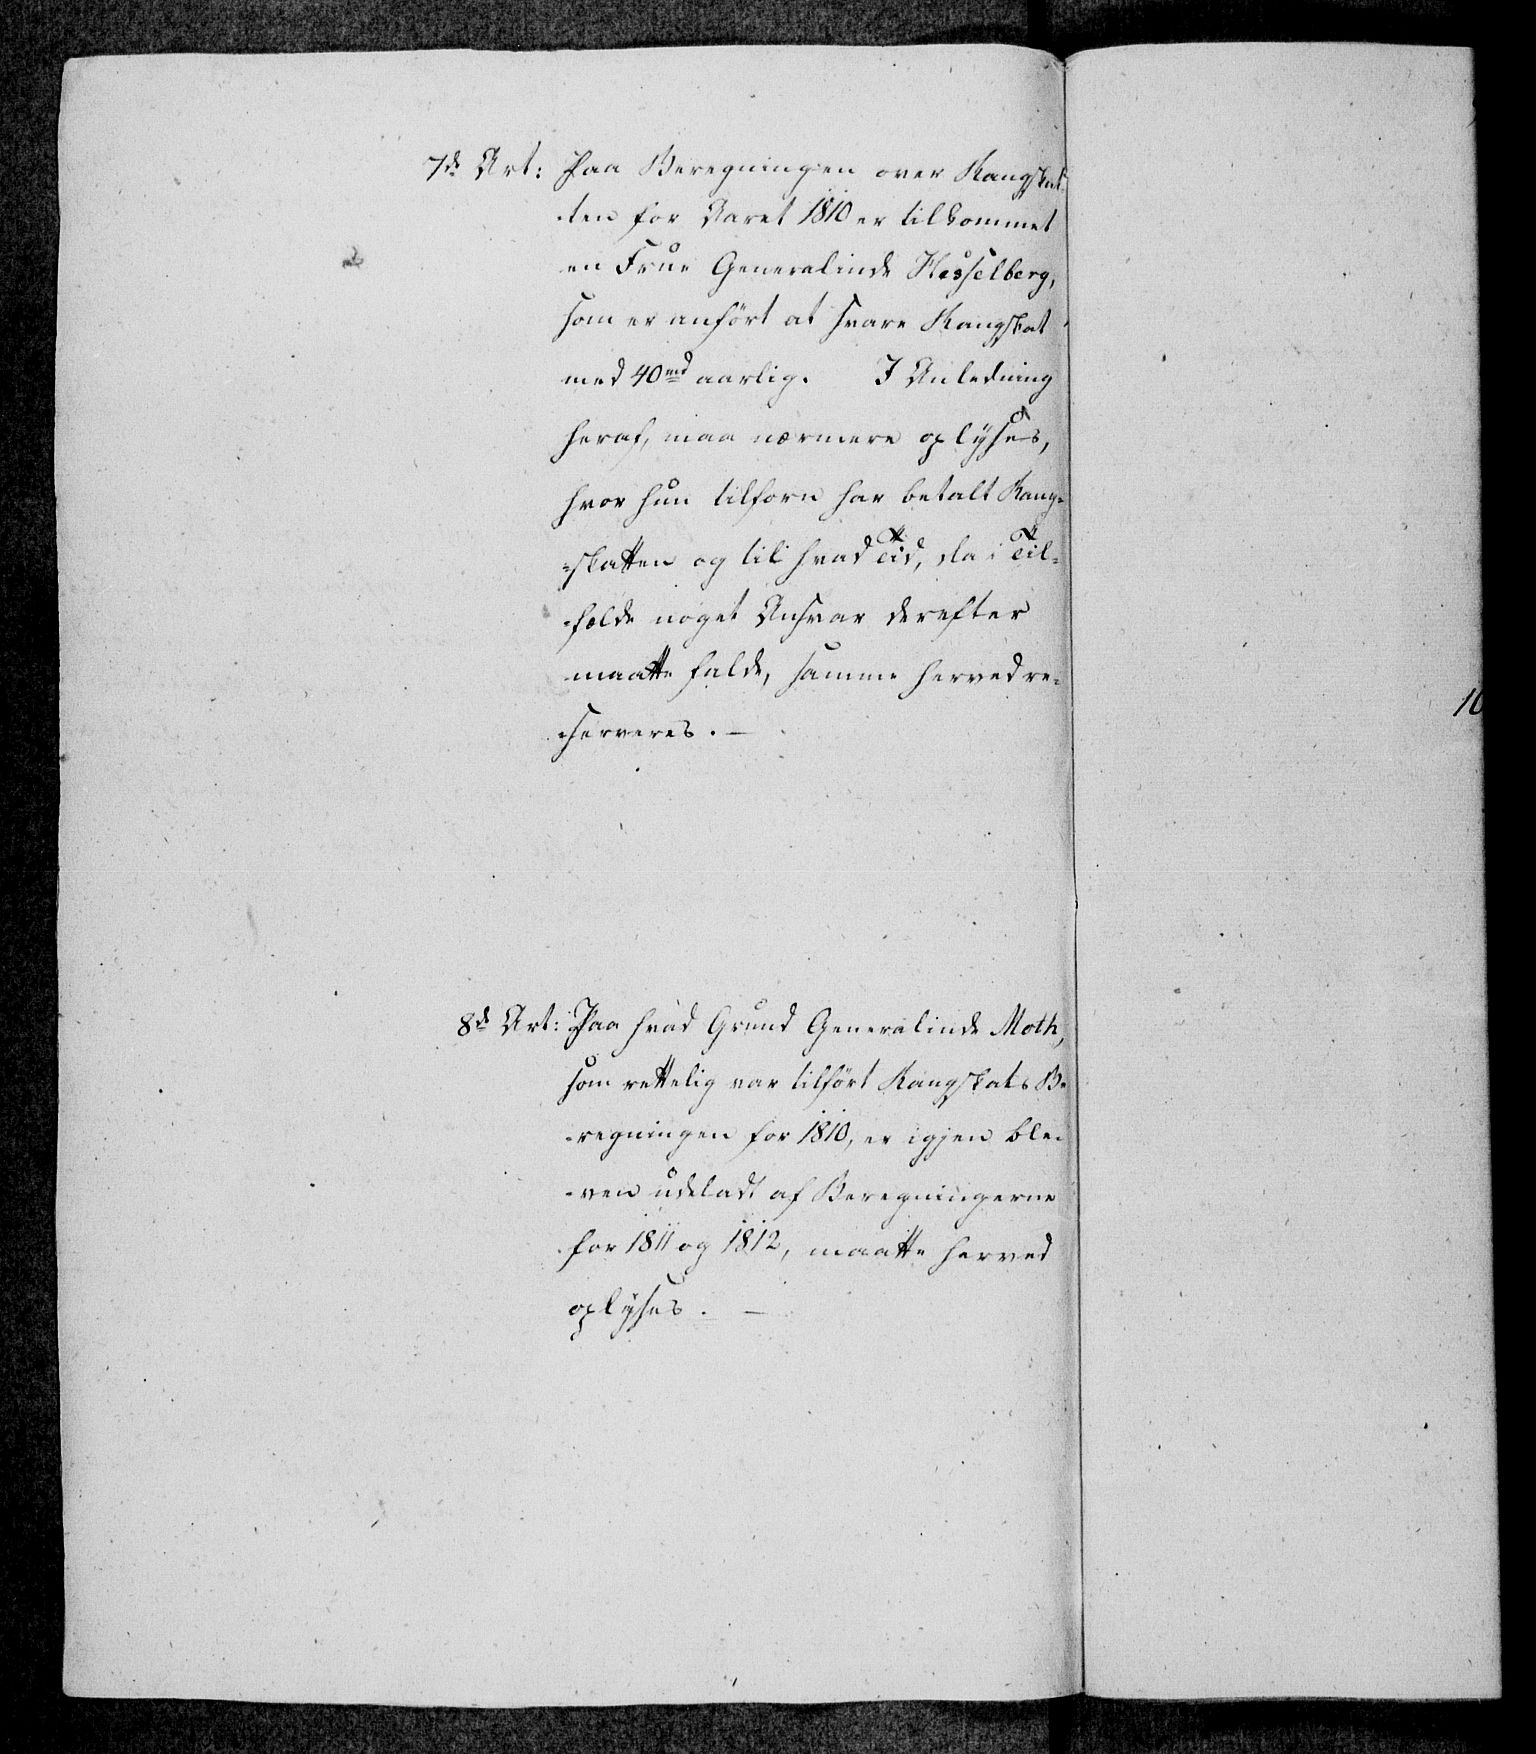 7de Art: Paa Beregningen over Rangskat-
-ten for Aaret 1810 er tilkommet
en Frue Generalinde Hesselberg,
som er anført at svare Rangskat
med 40 rd aarlig. I Anledning
heraf, maa nærmere oplÿses,
hvor hun tilforn har betalt Rang=
=skatten og til hvad Tid, da i Til=
-fælde noget Ansvar derefter
maatte falde, samme herved re=
-serveres. —
8de Art: Paa hvad Grund Generalinde Moth,
som rettelig var tilført Rangskats Be
-regningen for 1810, er igjen ble-
-ven udeladt af Beregningerne
for 1811 og 1812, maatte herved
oplÿses. —
10